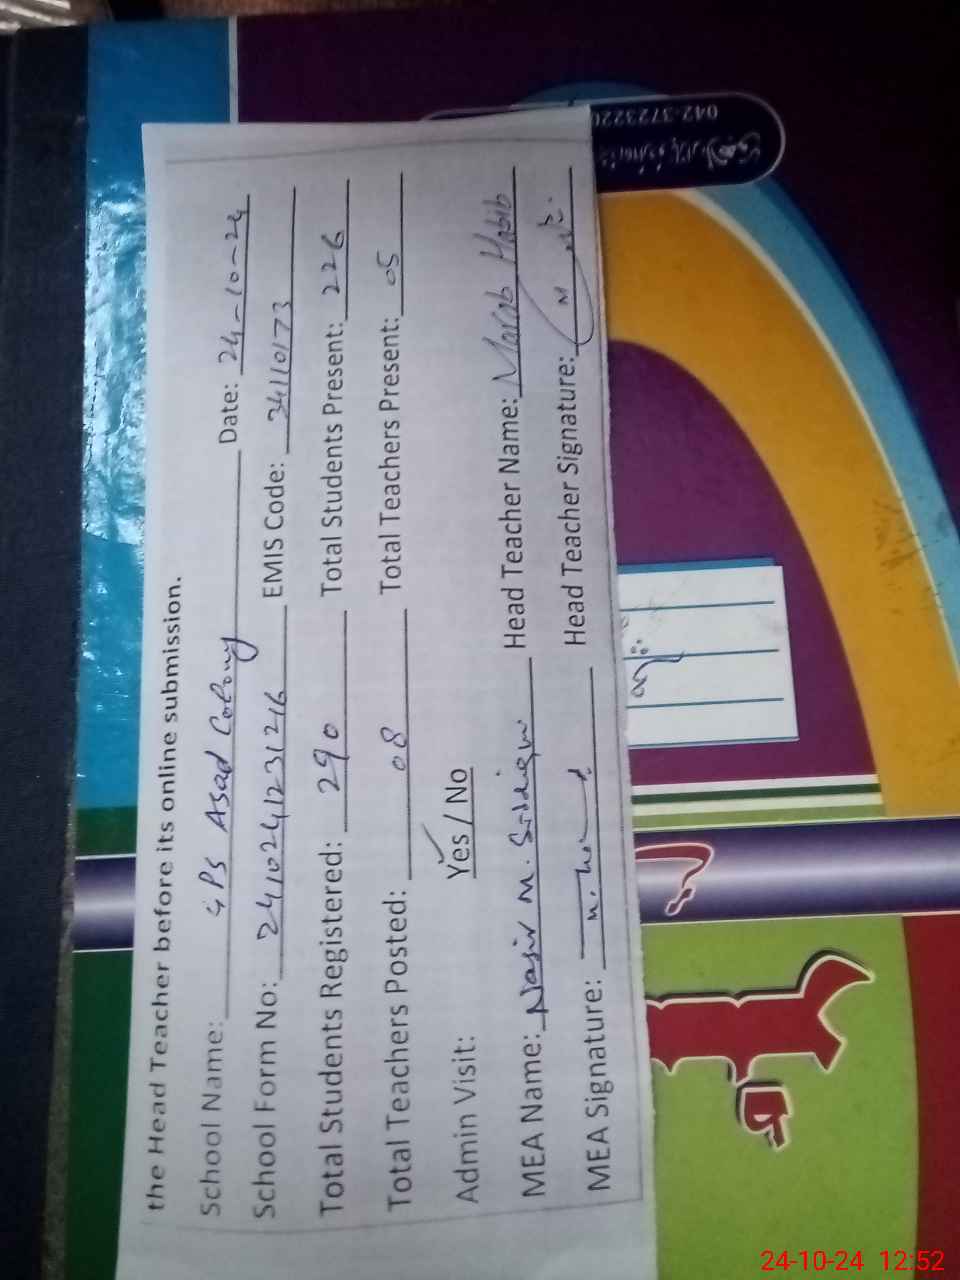 the Head Teacher before its online submission.
School Name: GPS Asad Colony Date: 24-10-24
School Form No: 2410241231216 EMIS Code: 34110173
Total Students Registered: 290 Total Students Present: 226
Total Teachers Posted: 08 Total Teachers Present: 05
Admin Visit: Yes / No
MEA Name: Nasir M. Siddiqui Head Teacher Name: Habib
MEA Signature: Head Teacher Signature:
042-372322
24-10-24 12:52